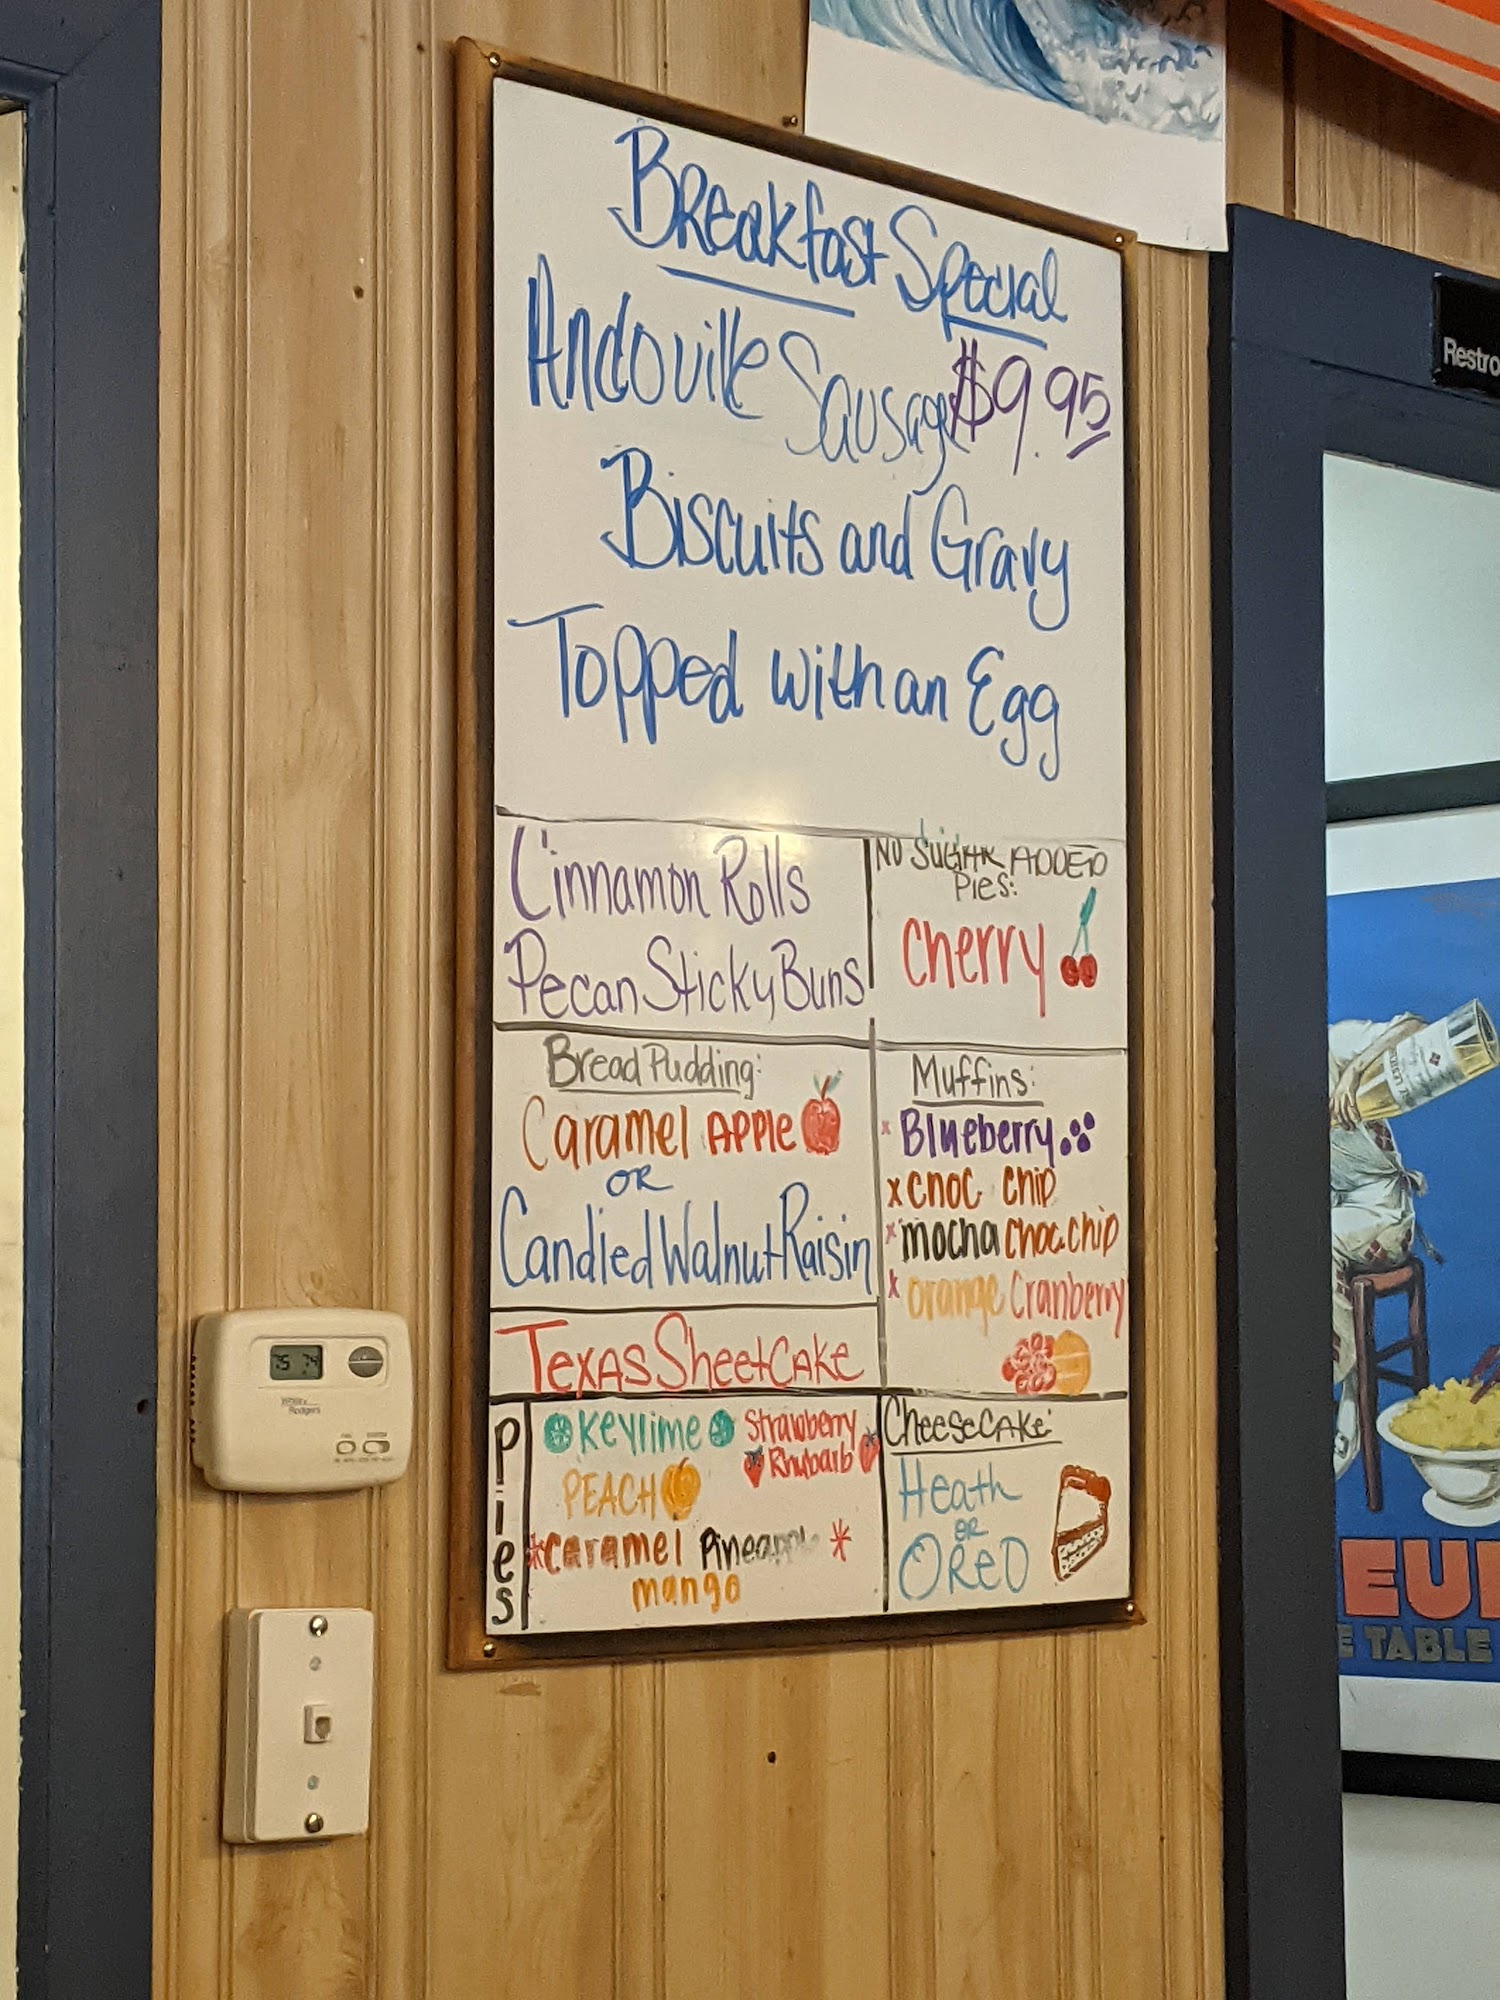 Breakfast Special
Andouille Sausage $9.95
Biscuits and Gravy
Topped with an Egg
Cinnamon Rolls
Pecan Sticky Buns
NO SUGAR ADDED
Pies:
Cherry
Bread Pudding:
Caramel APPle
OR
Candied Walnut Raisin
Muffins:
x Blueberry
x choc chip
x mocha choc.chip
x orange Cranberry
Texas Sheet CAKe
Pies
Keylime
Strawberry
Rhubarb
PEACH
*caramel Pineapple *
mango
CheeseCAKe:
Heath
OR
OReO
Restro
75 74
White
Rodgers
EU
E TABLE